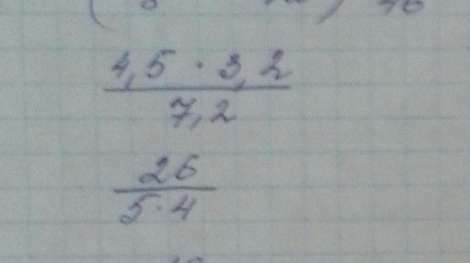 4,5 · 3,2
7,2
26
5·4